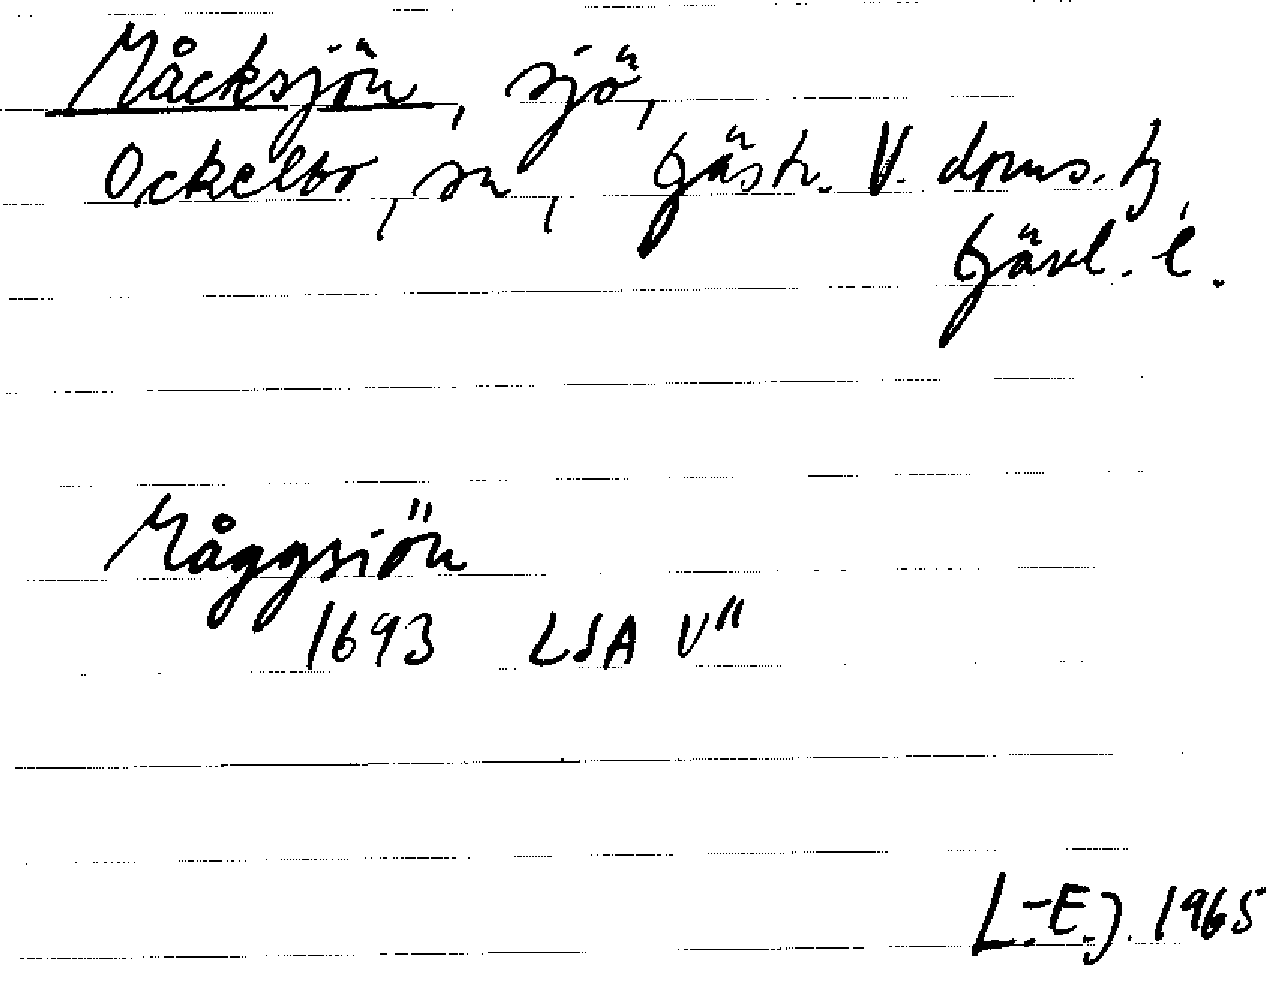 Måcksjön, sjö,
Ockelbo, sn, Gästr. V. doms. h
Gävl. l.
Måggsiön
1693 LSA V"
L.-E.J. 1965